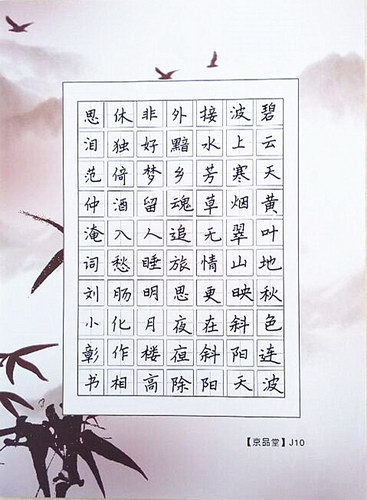 碧云天黄叶地秋色连波
波上寒烟翠山映斜阳天
接水芳草无情更在斜阳
外黯乡魂追旅思夜亱除
非好梦留人睡明月楼高
休独倚酒入愁肠化作相
思泪范仲淹词刘小彰书
【京品堂】J10